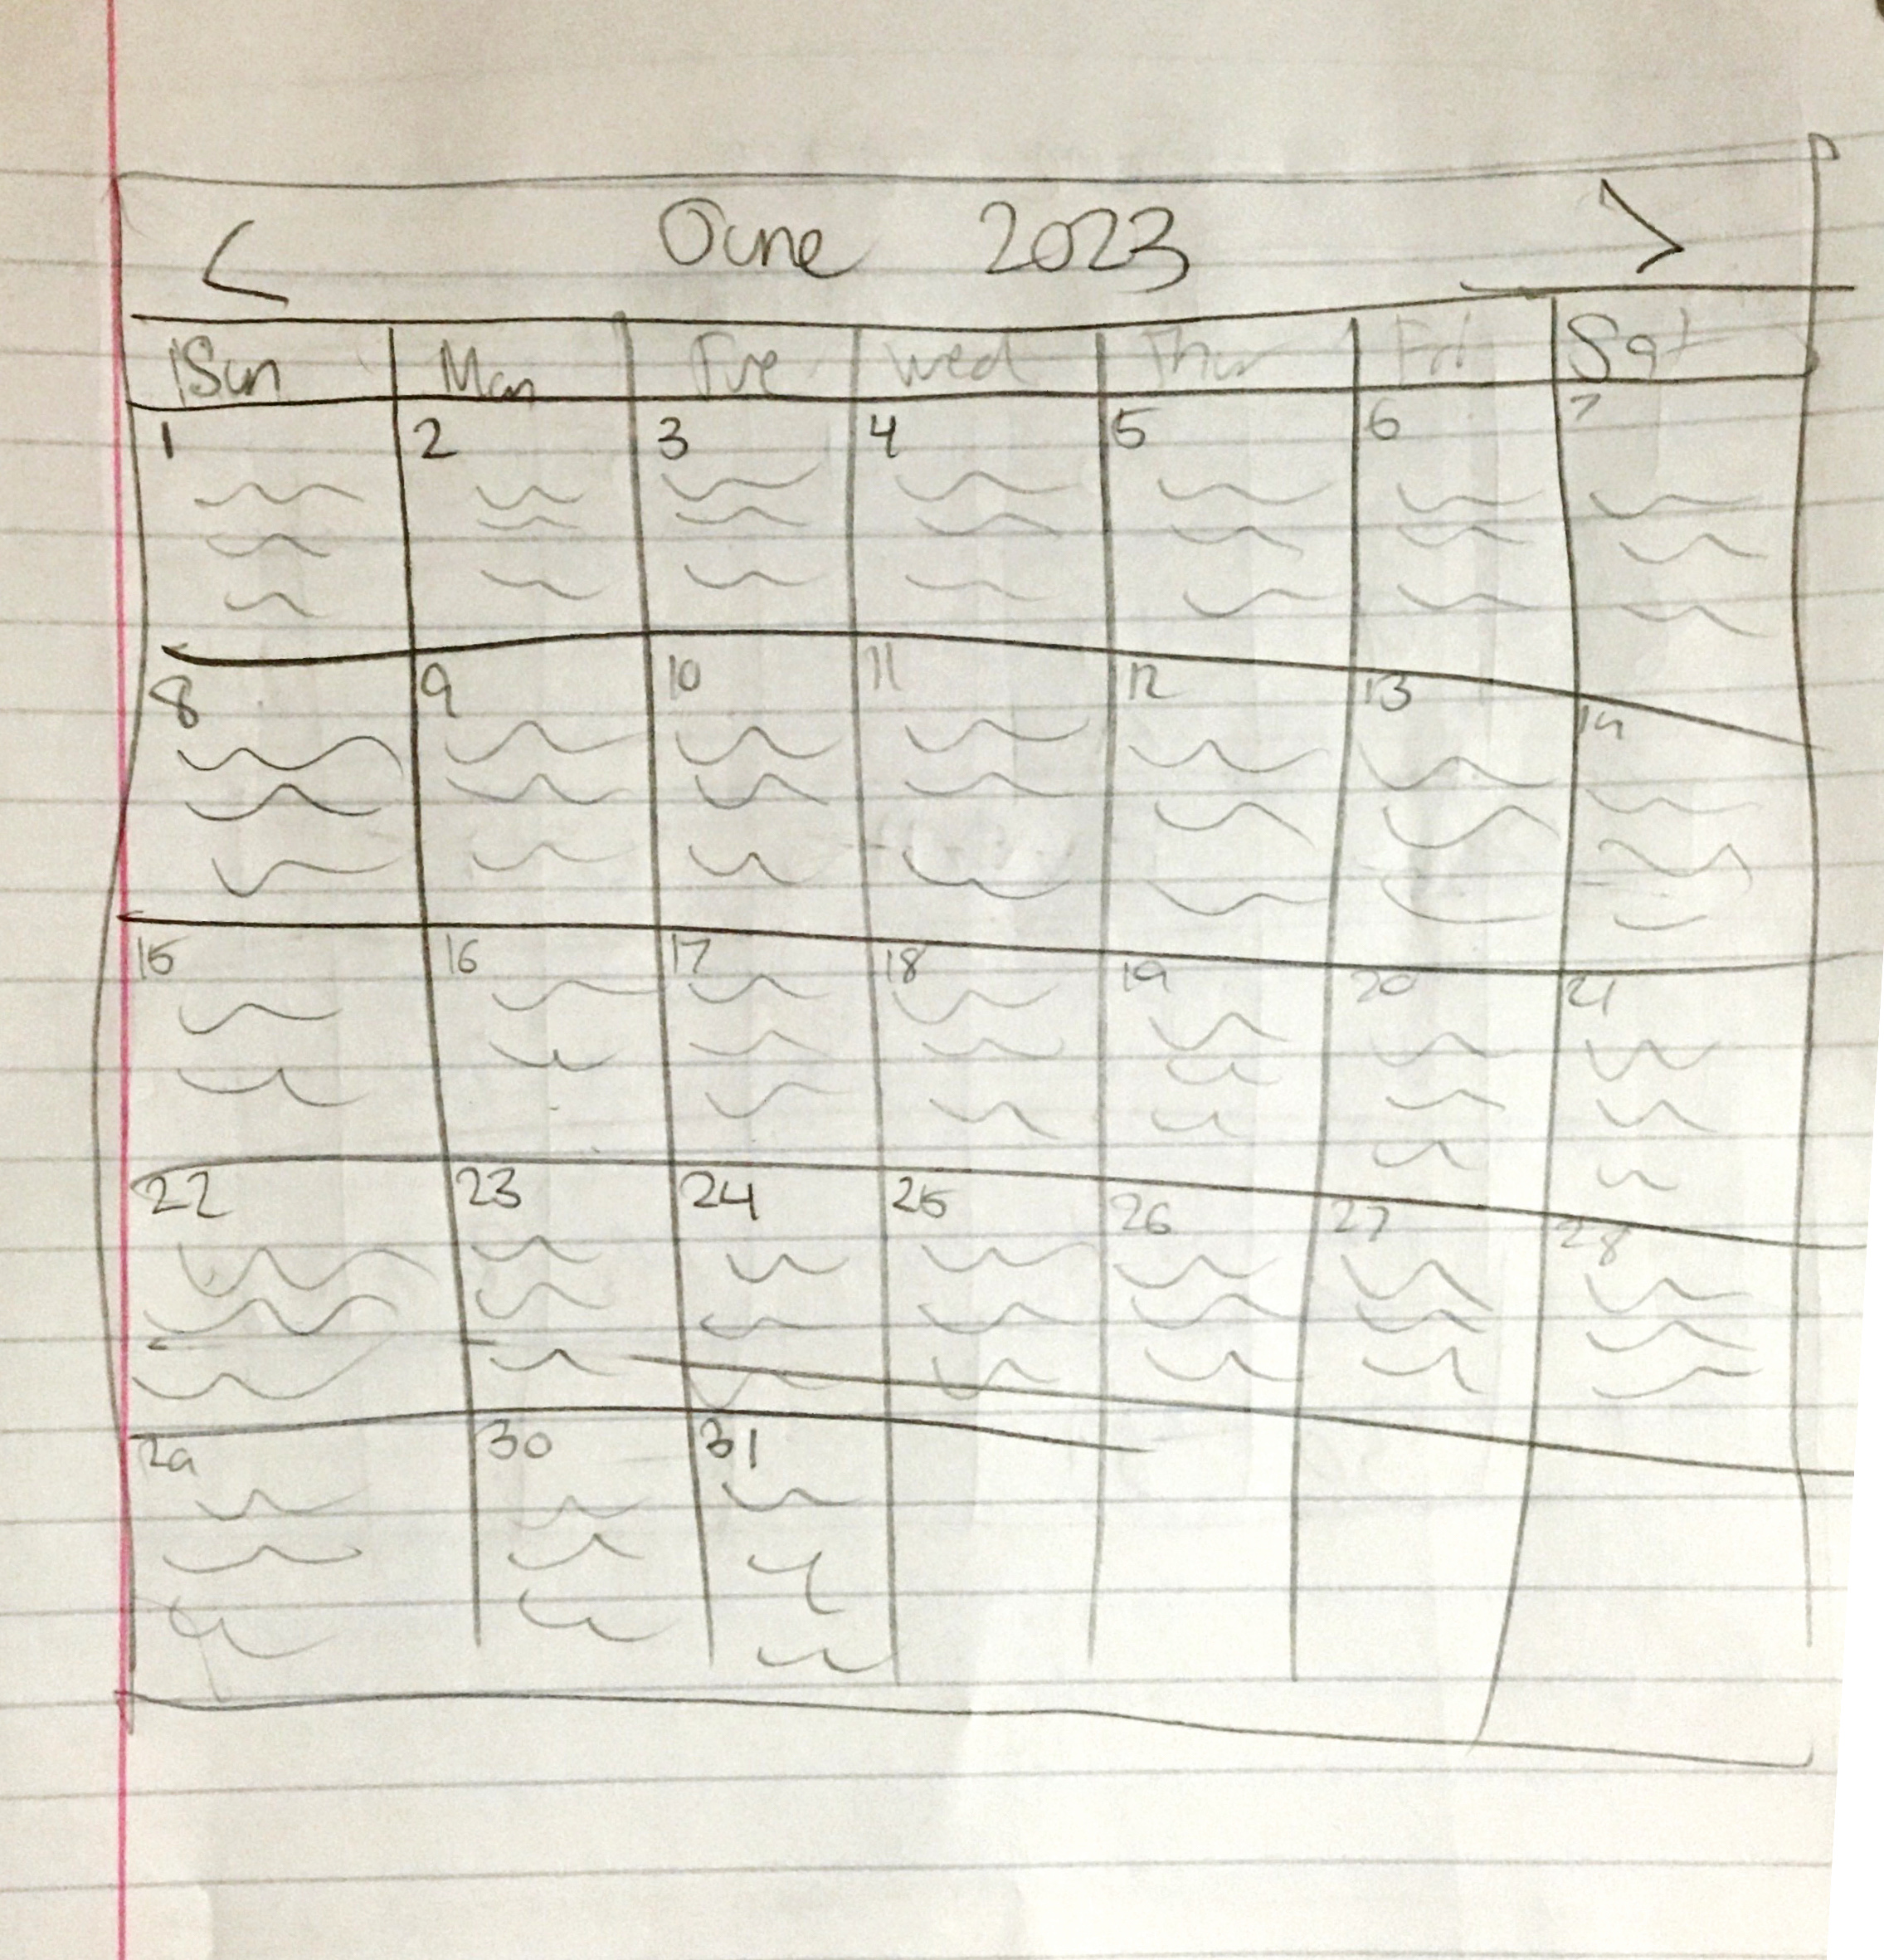 < June 2023 >
Sun Mon Tue Wed Thur Fri Sat
1 2 3 4 5 6 7
8 9 10 11 12 13 14
15 16 17 18 19 20 21
22 23 24 25 26 27 28
29 30 31